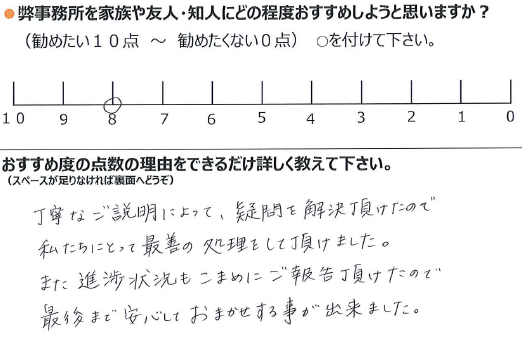 ●弊事務所を家族や友人・知人にどの程度おすすめしようと思いますか？
（勧めたい１０点　～　勧めたくない０点）　○を付けて下さい。
10 9 8 7 6 5 4 3 2 1 0
おすすめ度の点数の理由をできるだけ詳しく教えて下さい。
（スペースが足りなければ裏面へどうぞ）
丁寧なご説明によって、疑問を解決頂けたので
私たちにとって最善の処理をして頂けました。
また進捗状況もこまめにご報告頂けたので
最後まで安心しておまかせする事が出来ました。